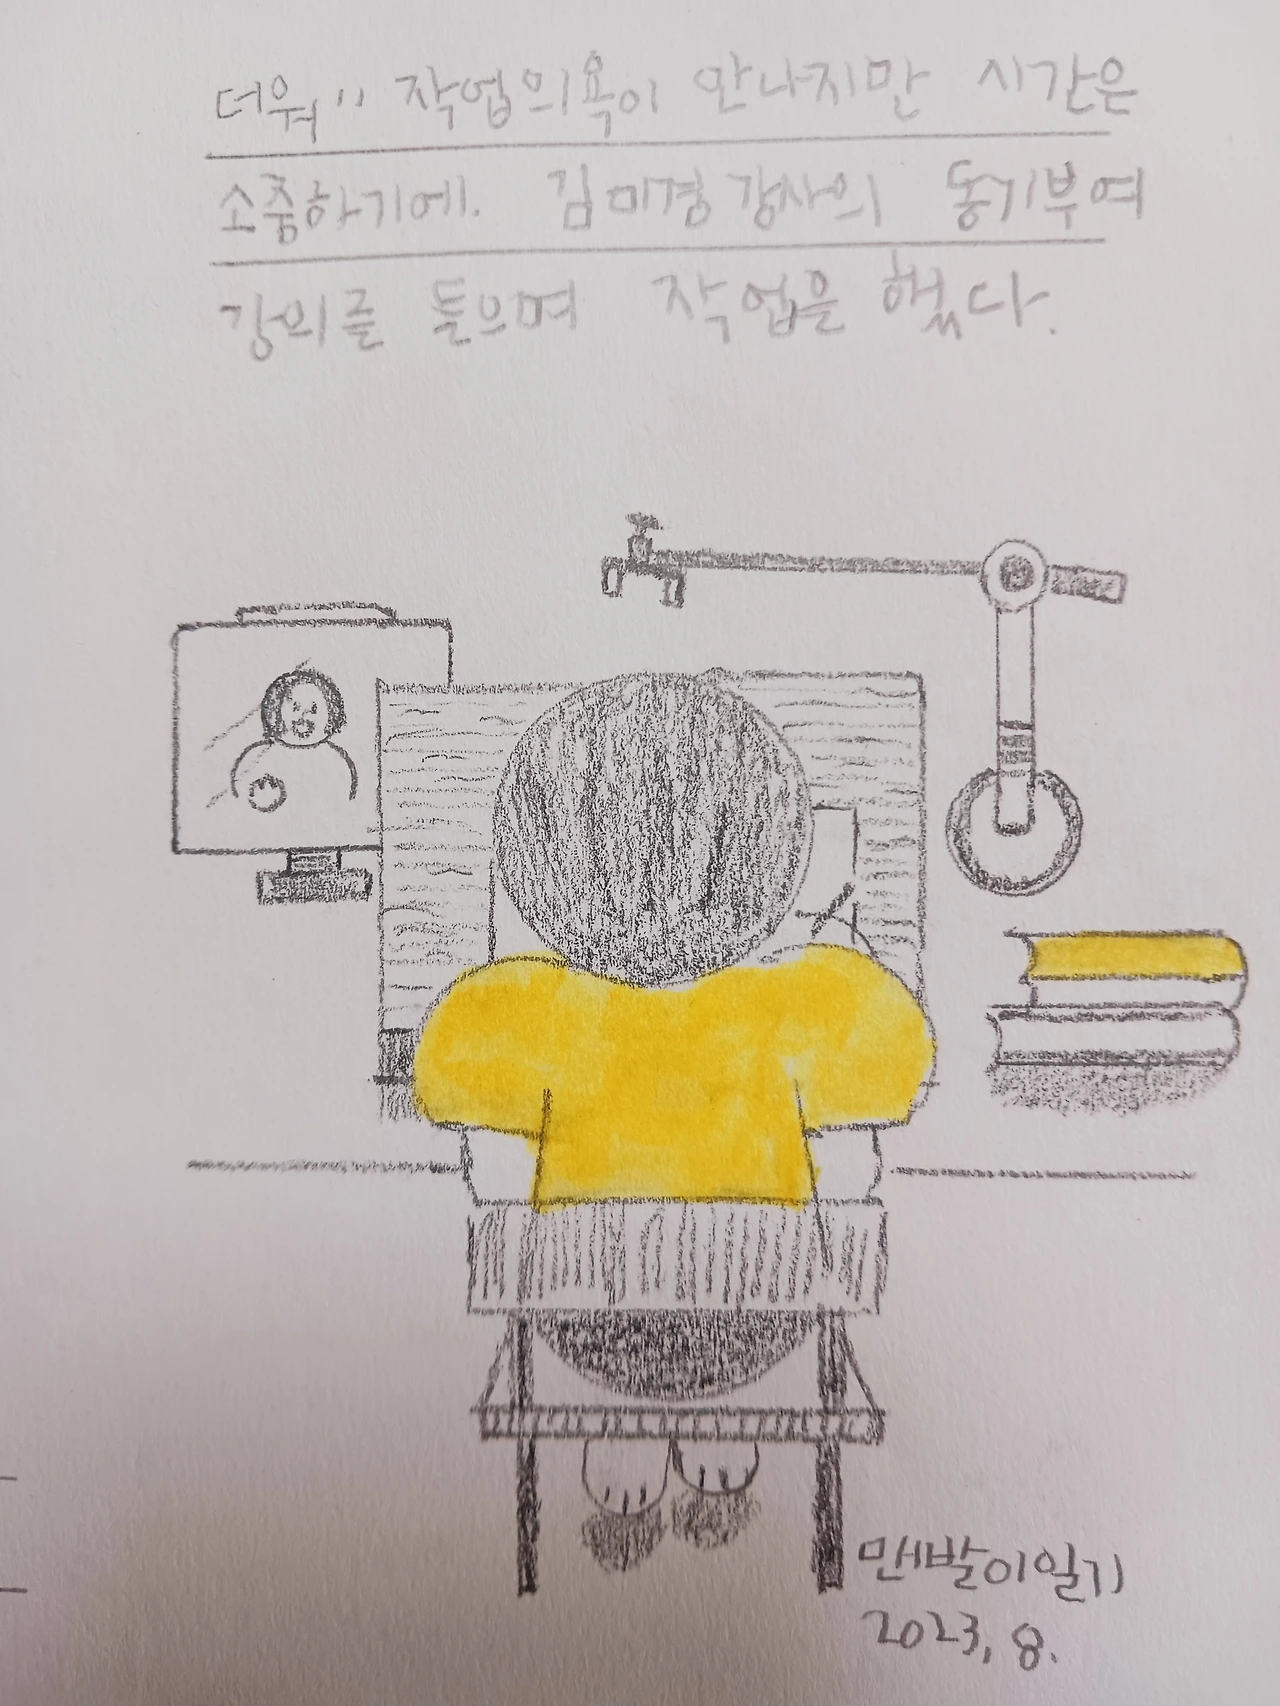 더워" 작업의욕이 안나지만 시간은
소중하기에. 김미경 강사의 동기부여
강의를 들으며 작업을 했다.
맨발이일기
2023, 8.